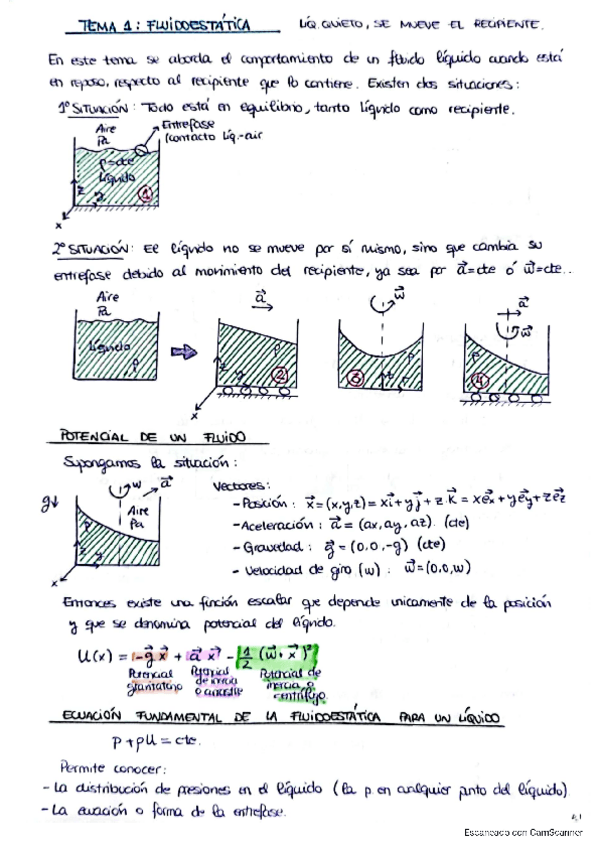 TEMA 1: FLUIDOESTÁTICA LÍQ. QUIETO, SE MUEVE EL RECIPIENTE.
En este tema se aborda el comportamiento de un fluido líquido cuando está
en reposo, respecto al recipiente que lo contiene. Existen dos situaciones:
1º SITUACIÓN: Todo está en equilibrio, tanto líquido como recipiente.
Aire
Pa
Entrefase
(contacto líq.-air
ρ=cte
Líquido
z
x
1
2º SITUACIÓN: El líquido no se mueve por sí mismo, sino que cambia su
entrefase debido al movimiento del recipiente, ya sea por a⃗=cte ó w⃗=cte..
Aire
Pa
a⃗
w⃗
a⃗
w⃗
Líquido
ρ
ρ
ρ
ρ
2
3
4
x
POTENCIAL DE UN FLUIDO
Supongamos la situación:
g↓
w
a⃗
Aire
Pa
ρ
z
y
x
Vectores:
- Posición: x⃗ = (x,y,z) = xi⃗ + yj⃗ + z·k⃗ = xe⃗x + ye⃗y + ze⃗z
- Aceleración: a⃗ = (ax, ay, az). (cte)
- Gravedad: g⃗ = (0,0,-g) (cte)
- Velocidad de giro (w): w⃗ = (0,0,w)
Entonces existe una función escalar que depende unicamente de la posición
y que se denomina potencial del líquido.
U(x) = -g⃗ x⃗ + a⃗ x⃗ - 1/2 (w⃗ · x⃗)²
Potencial gravitatorio
Potencial de inercia o arrastre
Potencial de inercia o centrífugo
ECUACIÓN FUNDAMENTAL DE LA FLUIDOESTÁTICA PARA UN LÍQUIDO
p + ρU = cte.
Permite conocer:
- La distribución de presiones en el líquido (la p en cualquier punto del líquido).
- La ecuación o forma de la entrefase.
Escaneado con CamScanner